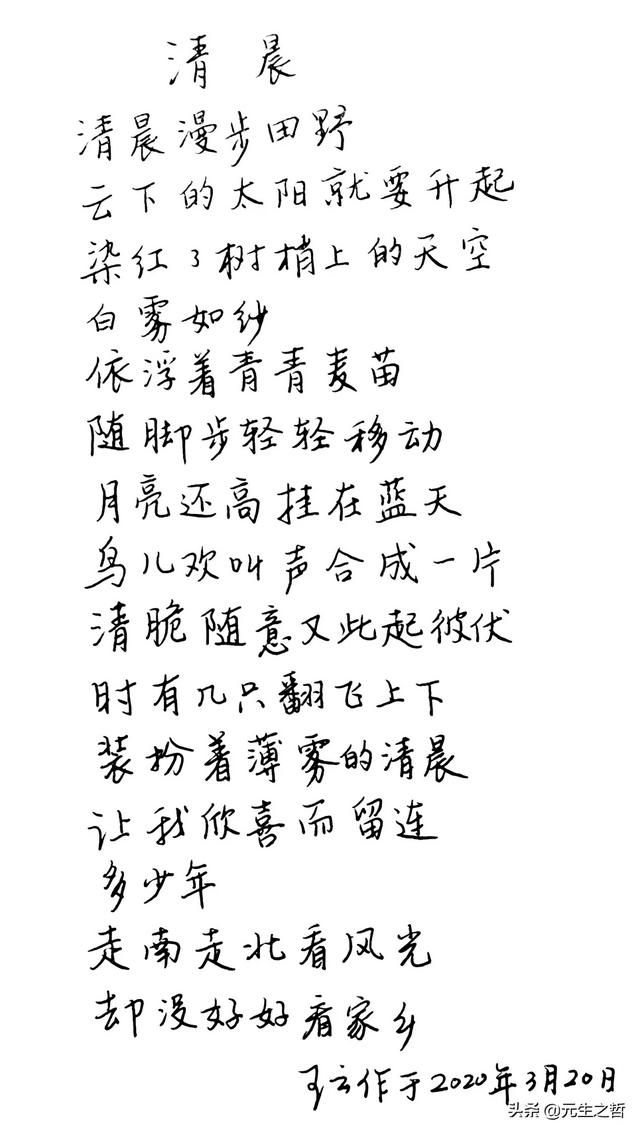 清晨
清晨漫步田野
云下的太阳就要升起
染红了树梢上的天空
白雾如纱
依浮着青青麦苗
随脚步轻轻移动
月亮还高挂在蓝天
鸟儿欢叫声合成一片
清脆随意又此起彼伏
时有几只翻飞上下
装扮着薄雾的清晨
让我欣喜而留连
多少年
走南走北看风光
却没好好看家乡
王云作于2020年3月20日
头条@元生之哲